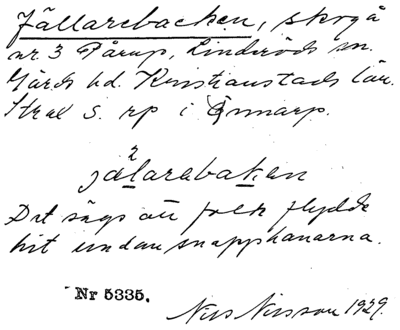 Jällarebacken, skog å
nr. 3 Pårup, Linderöds sn.
Gärds hd. Kristianstads län.
Strax S. rp i Ynnarp.
jälarebaken
Det sägs att folk flydde
hit undan snapphanarna.
Nr 5335.
Nils Nilsson 1929.